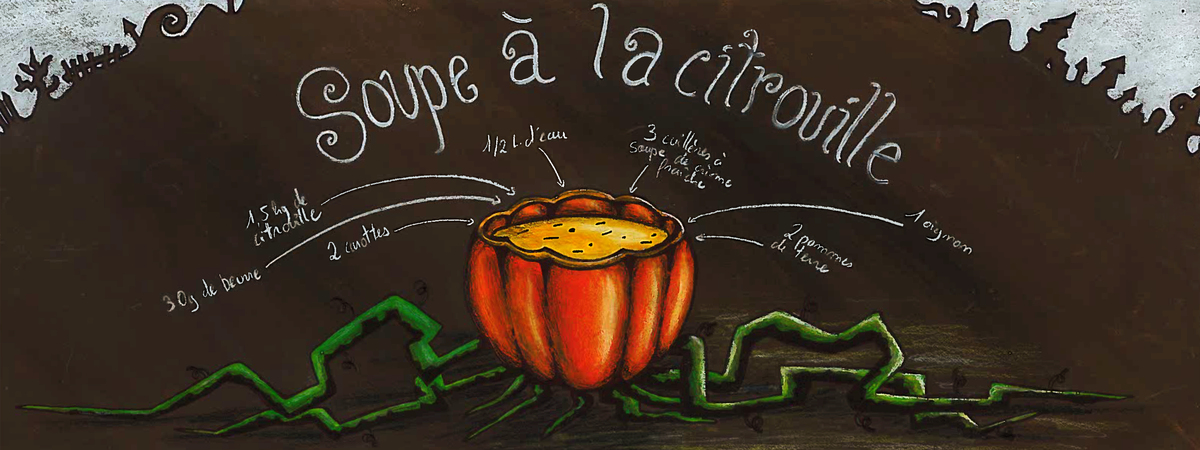 Soupe à la citrouille
1/2 L d'eau
3 cuillères à
soupe de crème
fraîche
1.5 kg de
citrouille
2 carottes
30g de beurre
1 oignon
2 pommes
de terre